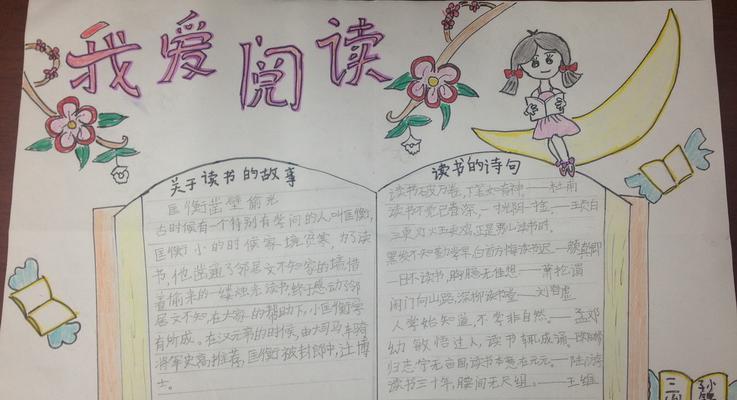 我爱阅读
关于读书的故事
匡衡凿壁偷光
古时候有一个特别有学问的人,叫匡衡,
匡衡小的时候家境贫寒,为了读
书,他凿通了邻居文不知家的墙,借
着偷来的一缕烛光读书,终于感动了邻
居文不知,在大家的帮助下,小匡衡学
有所成。在汉元帝的时候,由大司马、车骑
将军史高推荐,匡衡被封郎中,迁博
士。
读书的诗句
读书破万卷,下笔如有神——杜甫
读书不觉已春深,一寸光阴一寸金。——王贞白
三更灯火五更鸡,正是男儿读书时。
黑发不知勤学早,白首方悔读书迟——颜真卿
一日不读书,胸臆无佳想——萧抡谓
闭门向山路,深柳读书堂——刘昚虚
人学始知道,不学非自然。——孟郊
幼敏悟过人,读书辄成诵。
归志宁无五亩园,读书本意在元元。——陆游
读书三十年,腰间无尺组。——王维
三